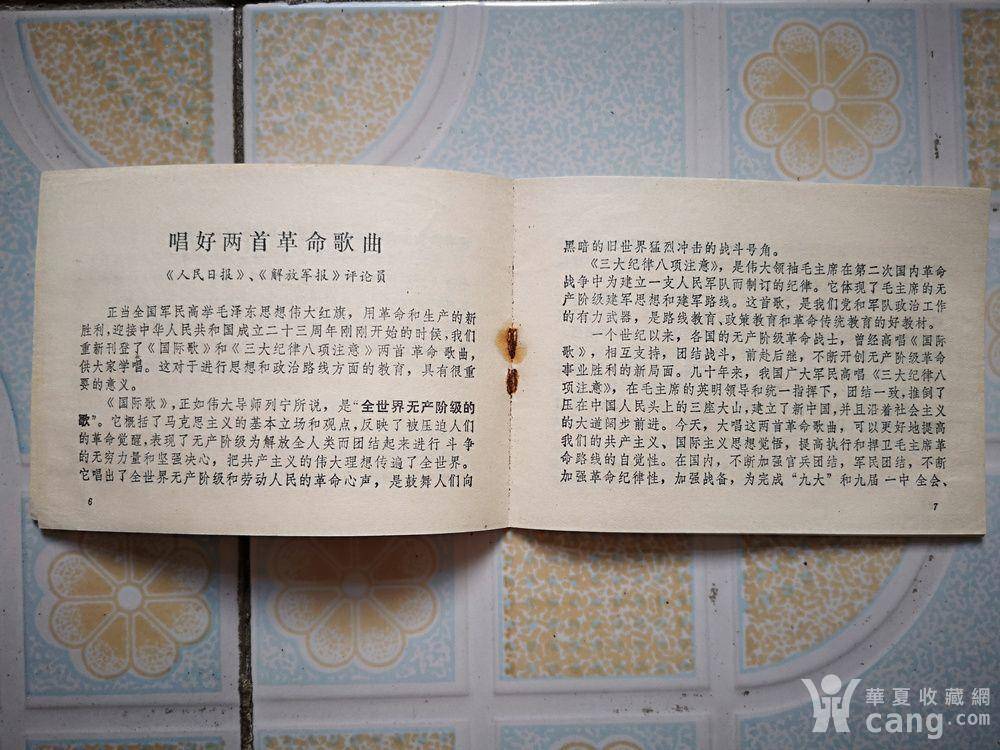 唱好两首革命歌曲
《人民日报》、《解放军报》评论员
正当全国军民高举毛泽东思想伟大红旗，用革命和生产的新
胜利，迎接中华人民共和国成立二十三周年刚刚开始的时候，我们
重新刊登了《国际歌》和《三大纪律八项注意》两首革命歌曲，
供大家学唱。这对于进行思想和政治路线方面的教育，具有很重
要的意义。
《国际歌》，正如伟大导师列宁所说，是“全世界无产阶级的
歌”。它概括了马克思主义的基本立场和观点，反映了被压迫人们
的革命觉醒，表现了无产阶级为解放全人类而团结起来进行斗争
的无穷力量和坚强决心，把共产主义的伟大理想传遍了全世界。
它唱出了全世界无产阶级和劳动人民的革命心声，是鼓舞人们向
6
黑暗的旧世界猛烈冲击的战斗号角。
《三大纪律八项注意》，是伟大领袖毛主席在第二次国内革命
战争中为建立一支人民军队而制订的纪律。它体现了毛主席的无
产阶级建军思想和建军路线。这首歌，是我们党和军队政治工作
的有力武器，是路线教育、政策教育和革命传统教育的好教材。
一个世纪以来，各国的无产阶级革命战士，曾经高唱《国际
歌》，相互支持，团结战斗，前赴后继，不断开创无产阶级革命
事业胜利的新局面。几十年来，我国广大军民高唱《三大纪律八
项注意》，在毛主席的英明领导和统一指挥下，团结一致，推倒了
压在中国人民头上的三座大山，建立了新中国，并且沿着社会主义
的大道阔步前进。今天，大唱这两首革命歌曲，可以更好地提高
我们的共产主义、国际主义思想觉悟，提高执行和捍卫毛主席革
命路线的自觉性。在国内，不断加强官兵团结，军民团结，不断
加强革命纪律性，加强战备，为完成“九大”和九届一中全会、
7
華夏收藏網
cang.com